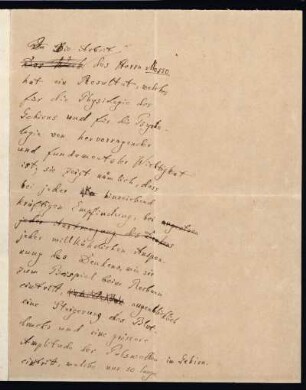 Die Arbeit
des Herrn Mosso
hat ein Resultat, welches
für die Physiologie des
Gehirns und für die Psycho-
logie von hervorragender
und fundamentaler Wichtigkeit
ist; sie zeigt nämlich, dass
bei jeder hinreichend
kräftigen Empfindung, bei
jeder willkürlichen Anspan-
nung des Denkens, wie sie
zum Beispiel beim Rechnen
eintritt, augenblicklich
eine Steigerung des Blut-
drucks und eine grössere
Amplitude der Pulswellen im Gehirn
eintritt, welche nur so lange